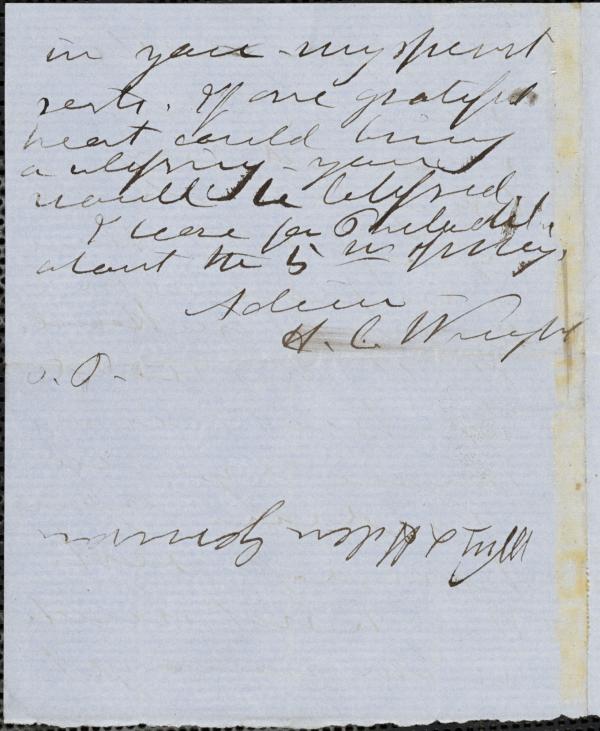 in you my spirit
rests. If one grateful
heart could bring
a blessing you
would be blessed.
I leave for Philadel.
about the 5th of May.
Adieu
H. C. Wright
Wm & Helen Garrison